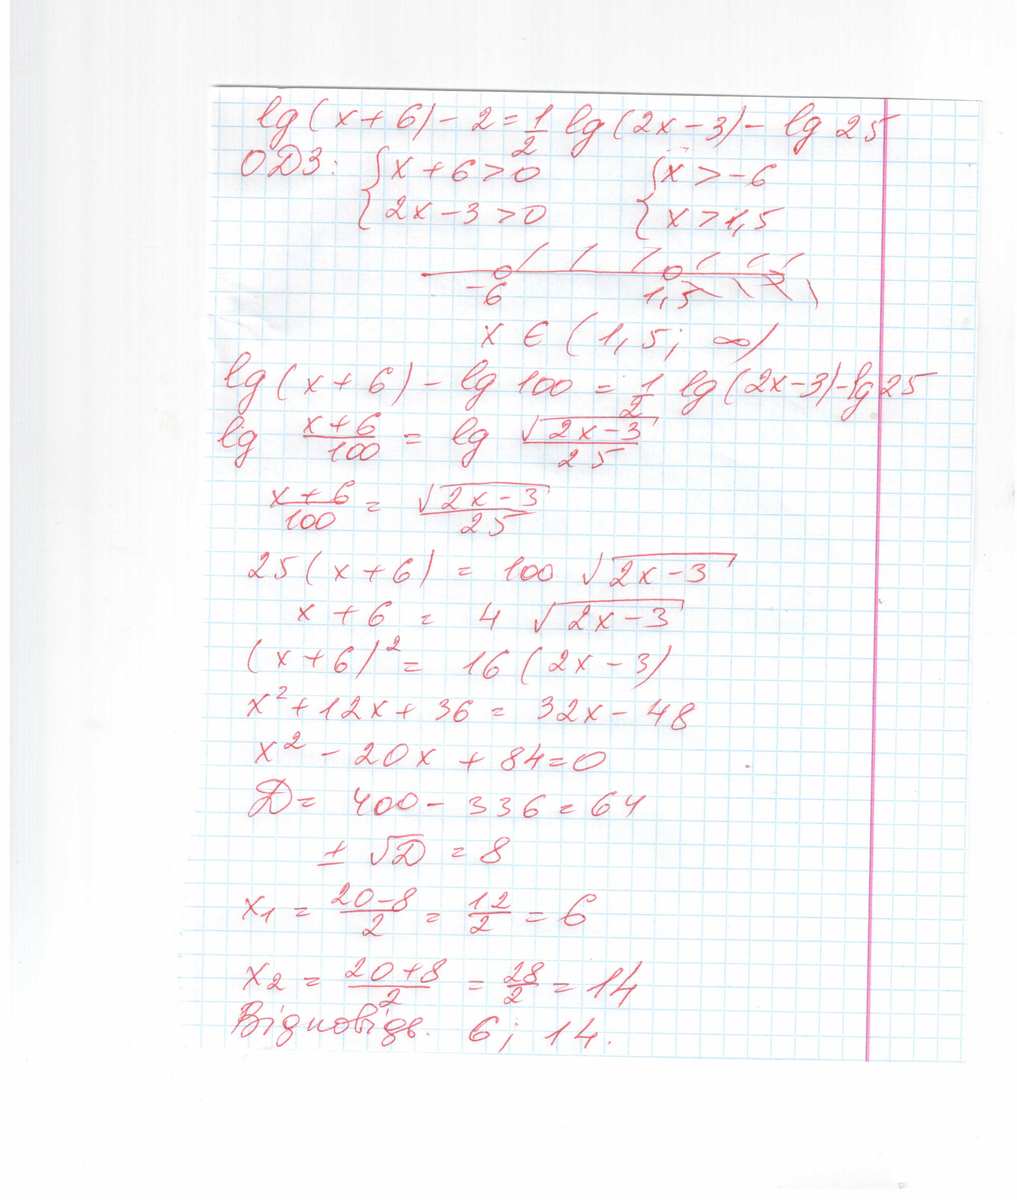 lg(x+6)-2=1/2 lg(2x-3)-lg 25
ОДЗ: {x+6>0 {x>-6
{2x-3>0 {x>1,5
-6 1,5
x∈(1,5; ∞)
lg(x+6)-lg 100 = 1/2 lg(2x-3)-lg 25
lg (x+6)/100 = lg √(2x-3)/25
(x+6)/100 = √(2x-3)/25
25(x+6) = 100 √(2x-3)
x+6 = 4 √(2x-3)
(x+6)² = 16(2x-3)
x²+12x+36 = 32x-48
x²-20x+84=0
D= 400-336=64
± √D = 8
x₁ = (20-8)/2 = 12/2 = 6
x₂ = (20+8)/2 = 28/2 = 14
Відповідь. 6; 14.